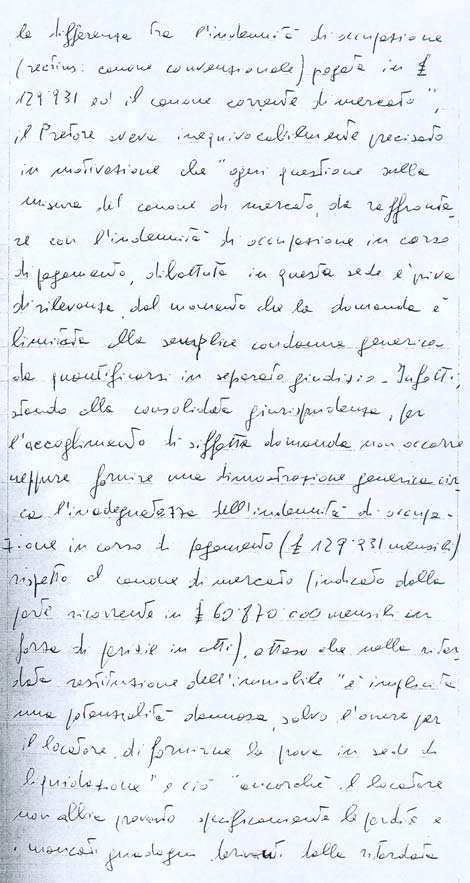 la differenza tra l'indennità di occupazione
(rectius: canone convenzionale) pagata in £
129.931 ed il canone corrente di mercato",
il Pretore aveva inequivocabilmente precisato
in motivazione che "ogni questione sulla
misura del canone di mercato, da raffronta-
re con l'indennità di occupazione in corso
di pagamento, dibattuta in questa sede è priva
di rilevanza, dal momento che la domanda è
limitata alla semplice condanna generica
da quantificarsi in separato giudizio - Infatti,
stando alla consolidata giurisprudenza, per
l'accoglimento di siffatta domanda non occorre
neppure fornire una dimostrazione generica cir-
ca l'inadeguatezza dell'indennità di occupa-
zione in corso di pagamento (£ 129.931 mensili)
rispetto al canone di mercato (indicato dalla
parte ricorrente in £ 60.870.000 mensili in
forza di perizie in atti), atteso che nella ritar-
data restituzione dell'immobile "è implicita
una potenzialità dannosa, salvo l'onere per
il locatore, di fornirne la prova in sede di
liquidazione" e ciò "ancorché il locatore
non abbia provato specificamente le perdite e
i mancati guadagni derivanti dalla ritardata